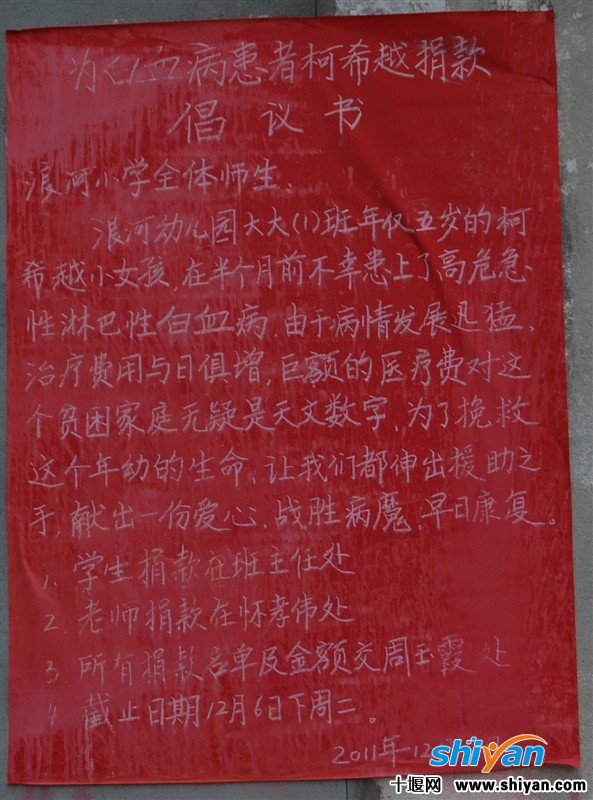 为白血病患者柯希越捐款
倡议书
浪河小学全体师生:
浪河幼儿园大大(1)班年仅五岁的柯
希越小女孩,在半个月前不幸患上了高危急
性淋巴性白血病,由于病情发展迅猛,
治疗费用与日俱增,巨额的医疗费对这
个贫困家庭无疑是天文数字,为了挽救
这个年幼的生命,让我们都伸出援助之
手,献出一份爱心,战胜病魔,早日康复。
1、学生捐款在班主任处
2、老师捐款在怀孝伟处
3、所有捐款名单及金额交周玉霞处
4、截止日期12月6日下周二。
2011年12
shiyan
十堰网 www.shiyan.com